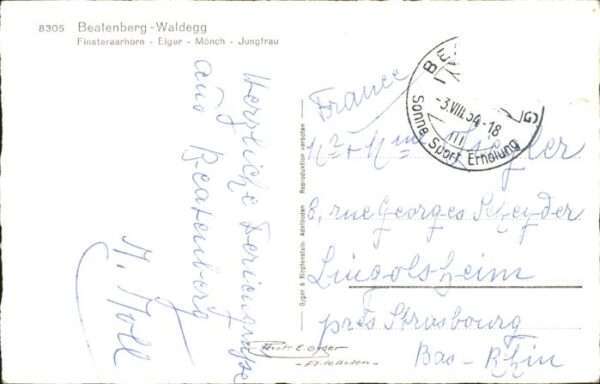 8305 Beatenberg-Waldegg
Finsteraarhorn - Eiger - Mönch - Jungfrau
Herzliche Feriengrüsse
aus Beatenberg
M. Moll
Gyger & Klopfenstein Adelboden Reproduktion verboten
BE
-3.VIII.54-18
Sonne Sport Erholung
France
Mr + Mme
8, rue Georges
Lingolsheim
près Strasbourg
Bas-Rhin